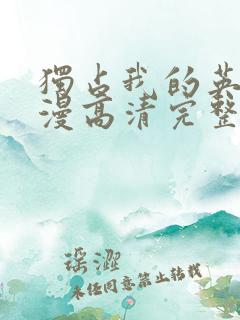 獨占我的英
漫高清完整
瑶澀
未经同意禁止转载